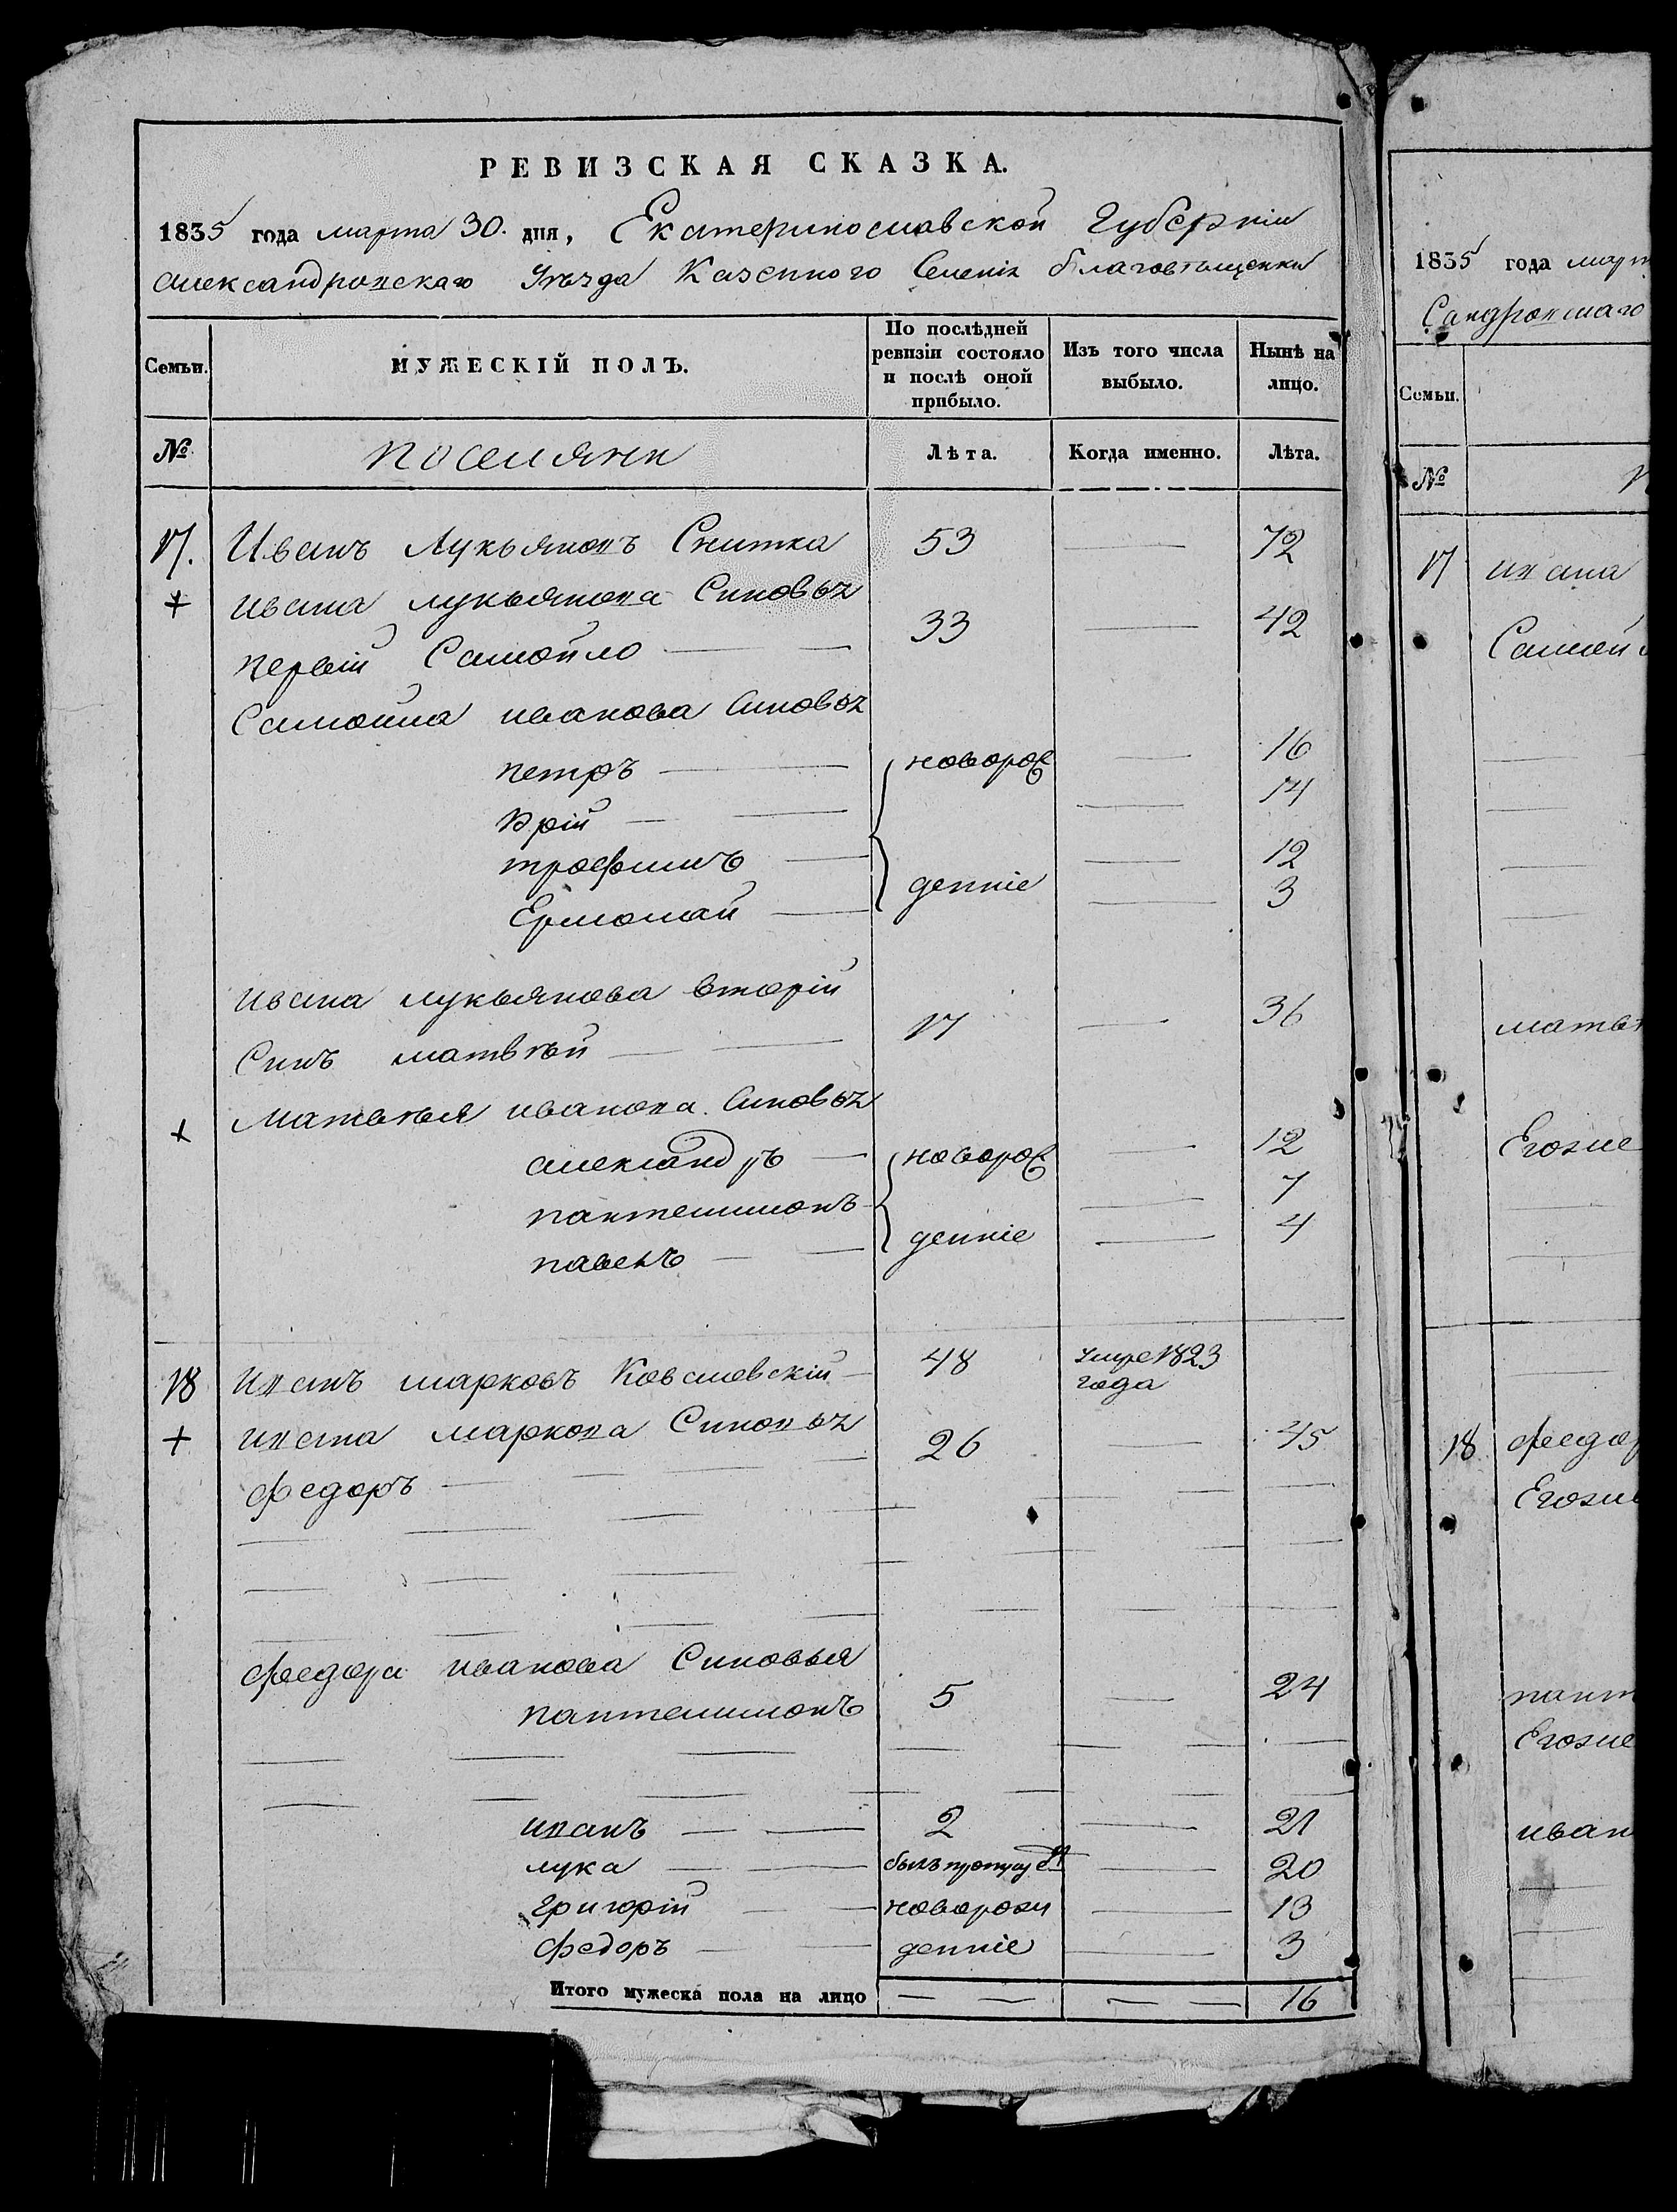 РЕВИЗСКАЯ СКАЗКА.
1835 года марта 30. дня, Екатеринославской Губерніи
александровскаго Уѣзда Казенного Селенія благовѣщенки
Семьи. МУЖЕСКІЙ ПОЛЪ. По послѣдней ревизіи состояло и послѣ оной прибыло. Изъ того числа выбыло. Нынѣ на лицо.
№ поселяни Лѣта. Когда именно. Лѣта.
17. Иванъ Лукьяновъ Снитка 53 — 72
+ ивана лукьянова Синовъя
первій Самойло — — 33 — 42
Самойла иванова Синовъя
петръ — новорож — 16
Юрій — — — 14
трофимъ — — 12
Ермолай — денніе — 3
ивана лукьянова вторій
Синъ матвѣй — — 17 — 36
+ Матвѣя иванова Синовъя
александръ — новорож — 12
пантелимонъ — 7
павелъ — — денніе — 4
18 иванъ марковъ Ковалевскій — 48 умре 1823 года
+ ивана маркова Синовъя 26 — 45
федоръ —
федора иванова Синовья
пантелимонъ 5 — 24
иванъ — — 2 — 21
лука — — былъ пропущен — 20
григорій — — новорож — 13
федоръ — — денніе — 3
Итого мужеска пола на лицо — — — — 16
1835 года март
Сандровскаго
Семьи.
№
17 ивана
Самой
матвѣ
Егоже
18 федор
Егоже
пант
Егоже
иван